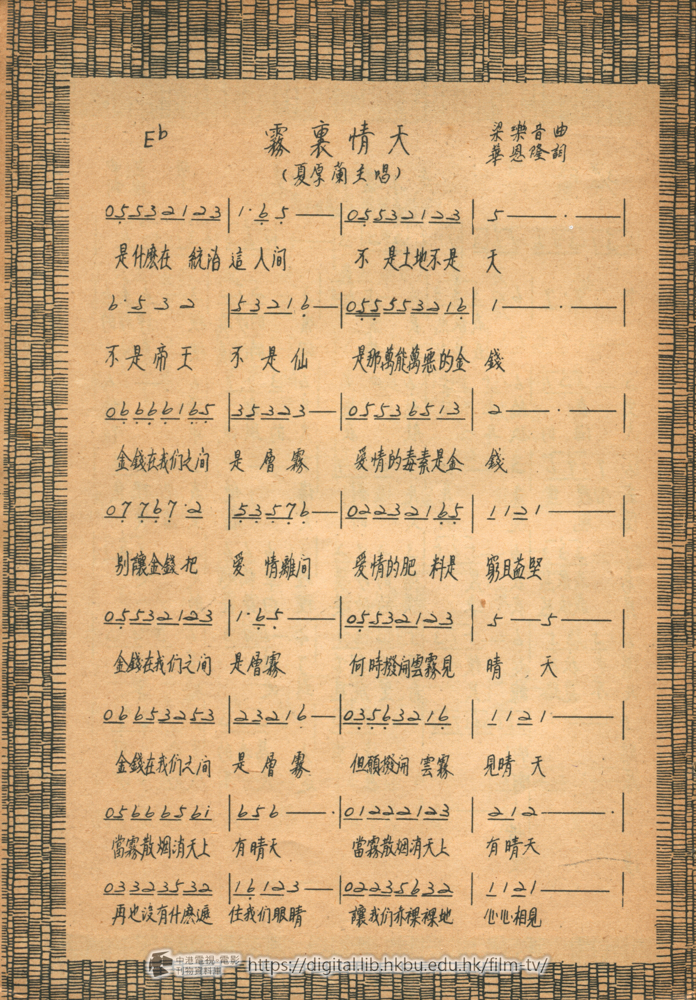 E♭ 霧裏情天 梁樂音曲
華恩隆詞
(夏厚蘭主唱)
05532123 | 1·65 — | 05532123 | 5 — · — |
是什麽在 統治這人间 不是土地不是 天
6·532 | 53216 — | 055553216 | 1 — · — |
不是帝王 不是仙 是那萬能萬惡的金 錢
06666165 | 35323 — | 05536513 | 2 — · — |
金錢在我们之间 是層霧 愛情的毒素是金 錢
07767·2 | 53576 — | 02232165 | 1121 — |
别讓金錢把 愛情離间 愛情的肥料是 窮且益堅
05532123 | 1·65 — | 05532123 | 5 — 5 — |
金錢在我们之间 是層霧 何時撥闹雲霧見 晴天
06653253 | 23216 — | 03563216 | 1121 — |
金錢在我们之间 是層霧 但願撥闹雲霧 見晴天
0566656i | 656 — · | 01222123 | 212 — |
當霧散烟消天上 有晴天 當霧散烟消天上 有晴天
03323532 | 16123 — | 02235632 | 1121 — |
再也没有什麽遮 住我们眼睛 讓我们赤裸裸地 心心相見
中港電視·電影
刊物資料庫 https://digital.lib.hkbu.edu.hk/film-tv/